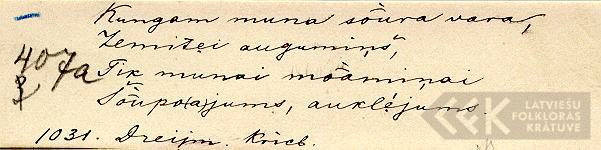 Kungam muna sõura vara,
Zemitei augumiņš,
407a Tik munai mõamiņai
Sõupo(a)ajums, auklejums.
1031. Dreijm. Kricb.
LATVIEŠU
FOLKLORAS
KRĀTUVE